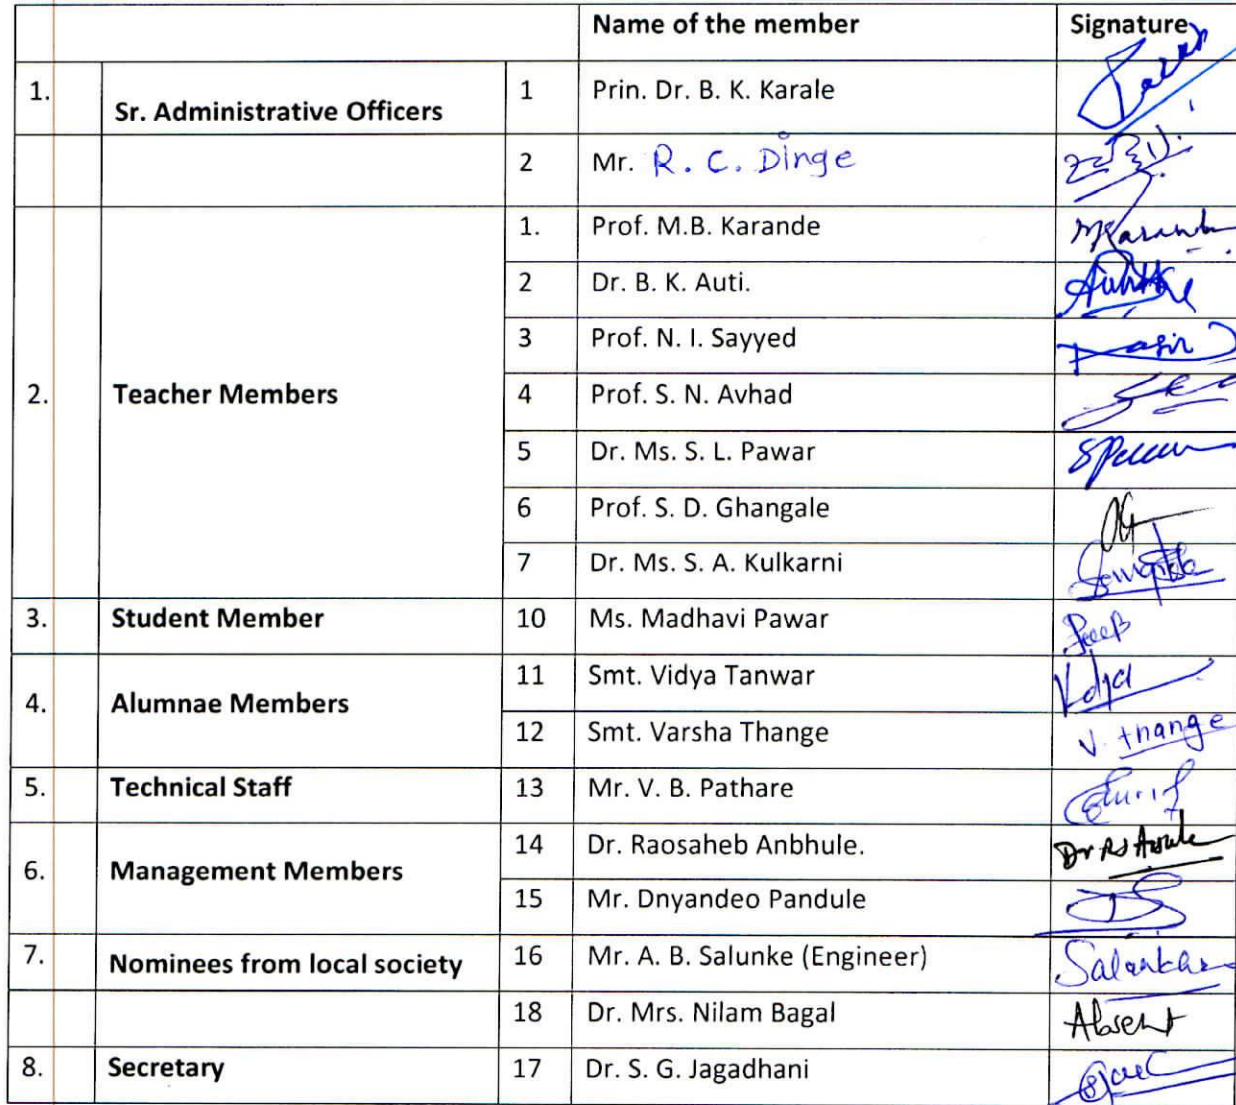 Name of the member Signature
1. Sr. Administrative Officers 1 Prin. Dr. B. K. Karale
2 Mr. R. C. Dinge
1. Prof. M.B. Karande
2 Dr. B. K. Auti.
3 Prof. N. I. Sayyed
2. Teacher Members 4 Prof. S. N. Avhad
5 Dr. Ms. S. L. Pawar
6 Prof. S. D. Ghangale
7 Dr. Ms. S. A. Kulkarni
3. Student Member 10 Ms. Madhavi Pawar
4. Alumnae Members 11 Smt. Vidya Tanwar
12 Smt. Varsha Thange V. Thange
5. Technical Staff 13 Mr. V. B. Pathare
6. Management Members 14 Dr. Raosaheb Anbhule.
15 Mr. Dnyandeo Pandule
7. Nominees from local society 16 Mr. A. B. Salunke (Engineer)
18 Dr. Mrs. Nilam Bagal Absent
8. Secretary 17 Dr. S. G. Jagadhani